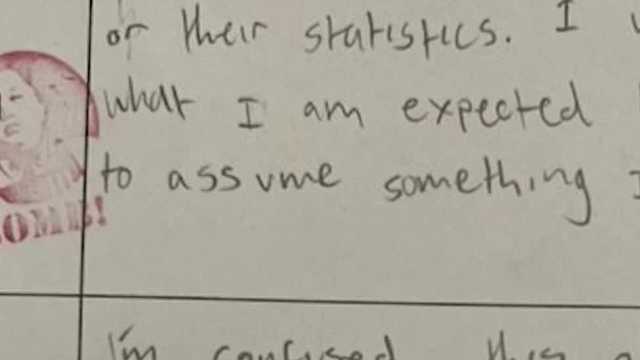 or their statistics. I
what I am expected
to assume something I
OME!
I'm confused this